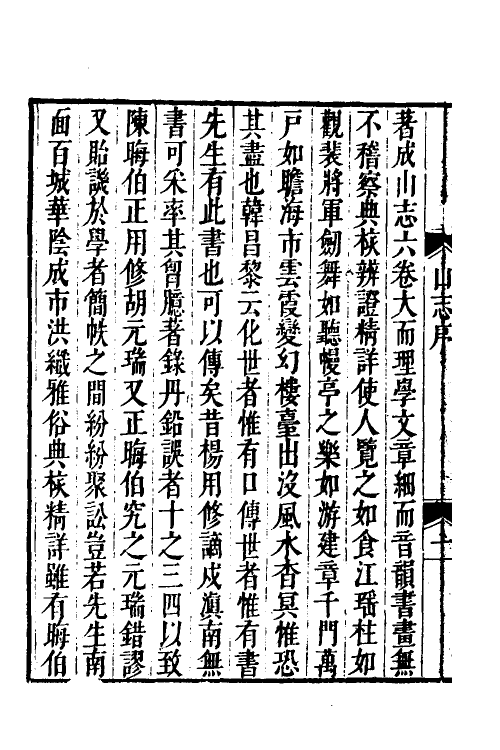 山志序
著成山志六卷大而理學文章細而音韻書畫無
不稽察典核辨證精詳使人覽之如食江瑶柱如
觀裴將軍劒舞如聽幔亭之樂如游建章千門萬
戸如瞻海市雲霞變幻樓臺出没風水杳冥惟恐
其盡也韓昌黎云化世者惟有口傳世者惟有書
先生有此書也可以傳矣昔楊用修謫戍滇南無
書可采率其胷臆著錄丹鉛誤者十之三四以致
陳晦伯正用修胡元瑞又正晦伯究之元瑞錯謬
又貽譏於學者簡帙之間紛紛聚訟豈若先生南
面百城華陰成市洪纖雅俗典核精詳雖有晦伯